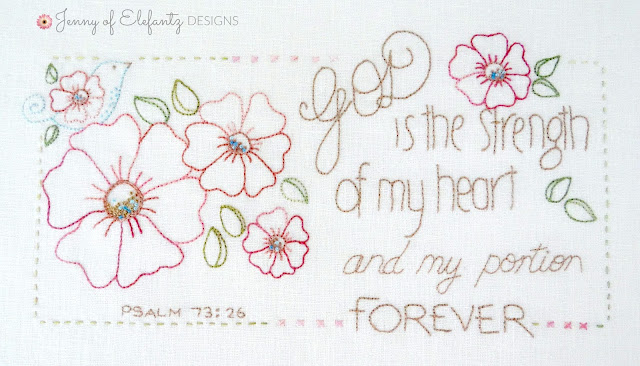 Jenny of Elefantz DESIGNS
GOD
is the strength
of my heart
and my portion
FOREVER
PSALM 73:26